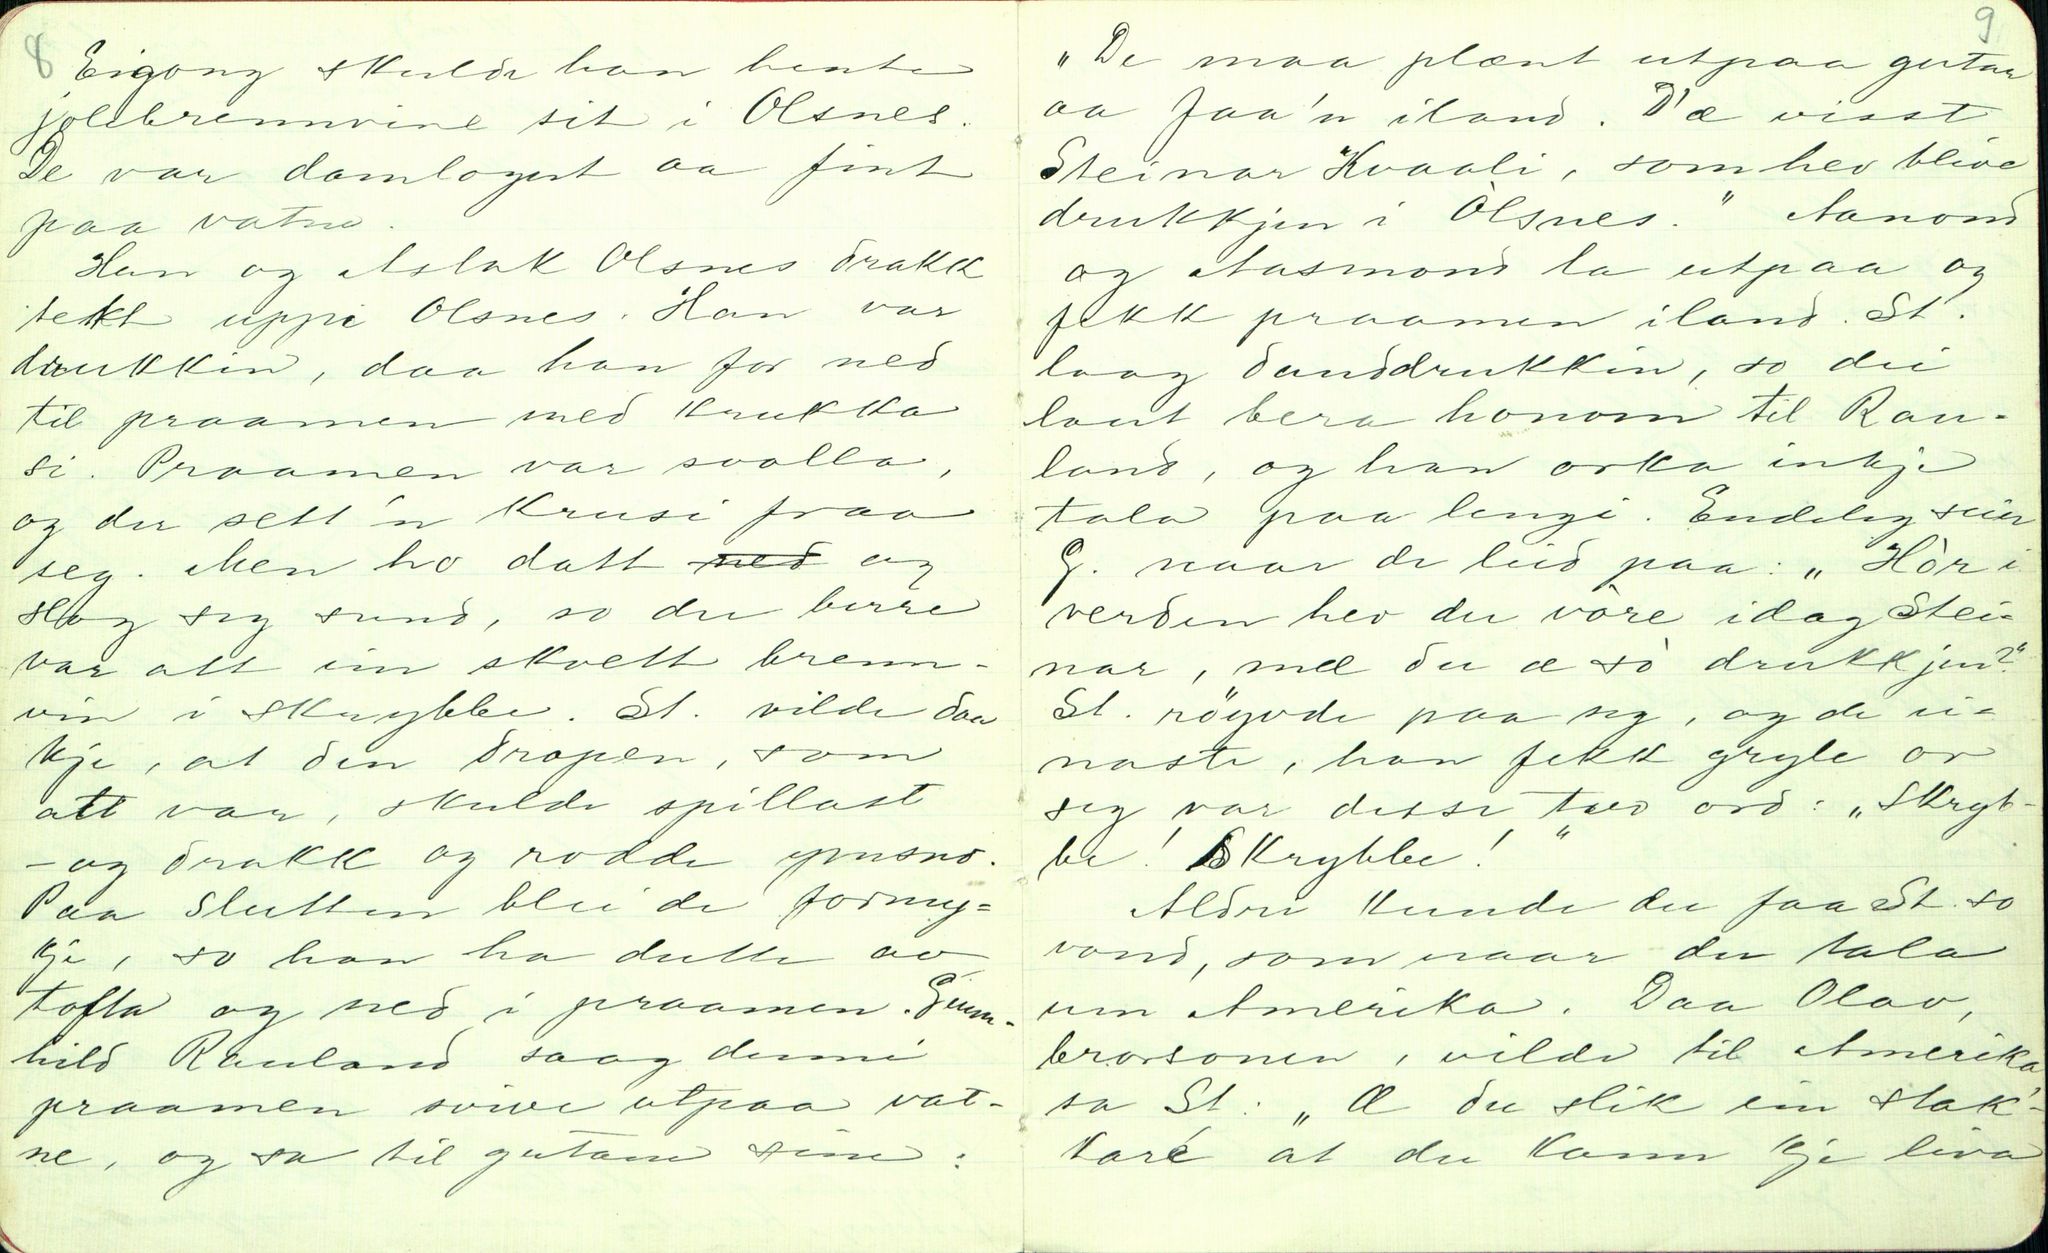 8
Eigong skulde han hente
jolebrennvine sit i Olsnes.
De var damlognt aa fint
paa vatne.
Han og Aslak Olsnes drakk
tekt uppi Olsnes. Han var
drukkin, daa han for ned
til praamen med krukka
si. Praamen var svalla,
og du sett'n krusi fraa
seg. Men ho datt ned og
slog seg sund, so du berre
var att ein skvett brenn-
vin i skrybbe. St. vilde daa
kje, at den dropen, som
att var, skulde spillast
- og drakk og rodde ymsno.
Paa slutten blei de formy=
kje, so han ha dutte av
tofta og ned i praamen. Gunn-
hild Rauland saag denni
praamen svive utpaa vat-
ne, og sa til gutane sine:
9
"De maa plent utpaa gutar
aa faa'n iland. D'æ visst
Steinar Kvaali, som hev blive
drukkjen i Òlsnes." Aanond
og Aasmond la utpaa og
fekk praamen iland. St.
laag dauddrukkin, so dei
laut bera honom til Rau-
land, og han orka inkje
tala paa lengi. Endeleg seier
G. naar de leid paa: "Hòr i
verden hev du vòre idag Stei-
nar, mæ du æ sò drukkjen?"
St. röyvde paa seg, og de ei-
naste, han fekk gryle or
seg var desse two ord: "Skryb-
be! Skrybbe!"
Aldri kunde du faa St. so
vond, som naar du tala
um Amerika. Daa Olav,
brorsonen, vilde til Amerika
sa St: "Æ du slik ein stak'-
kare at du kann kje liva